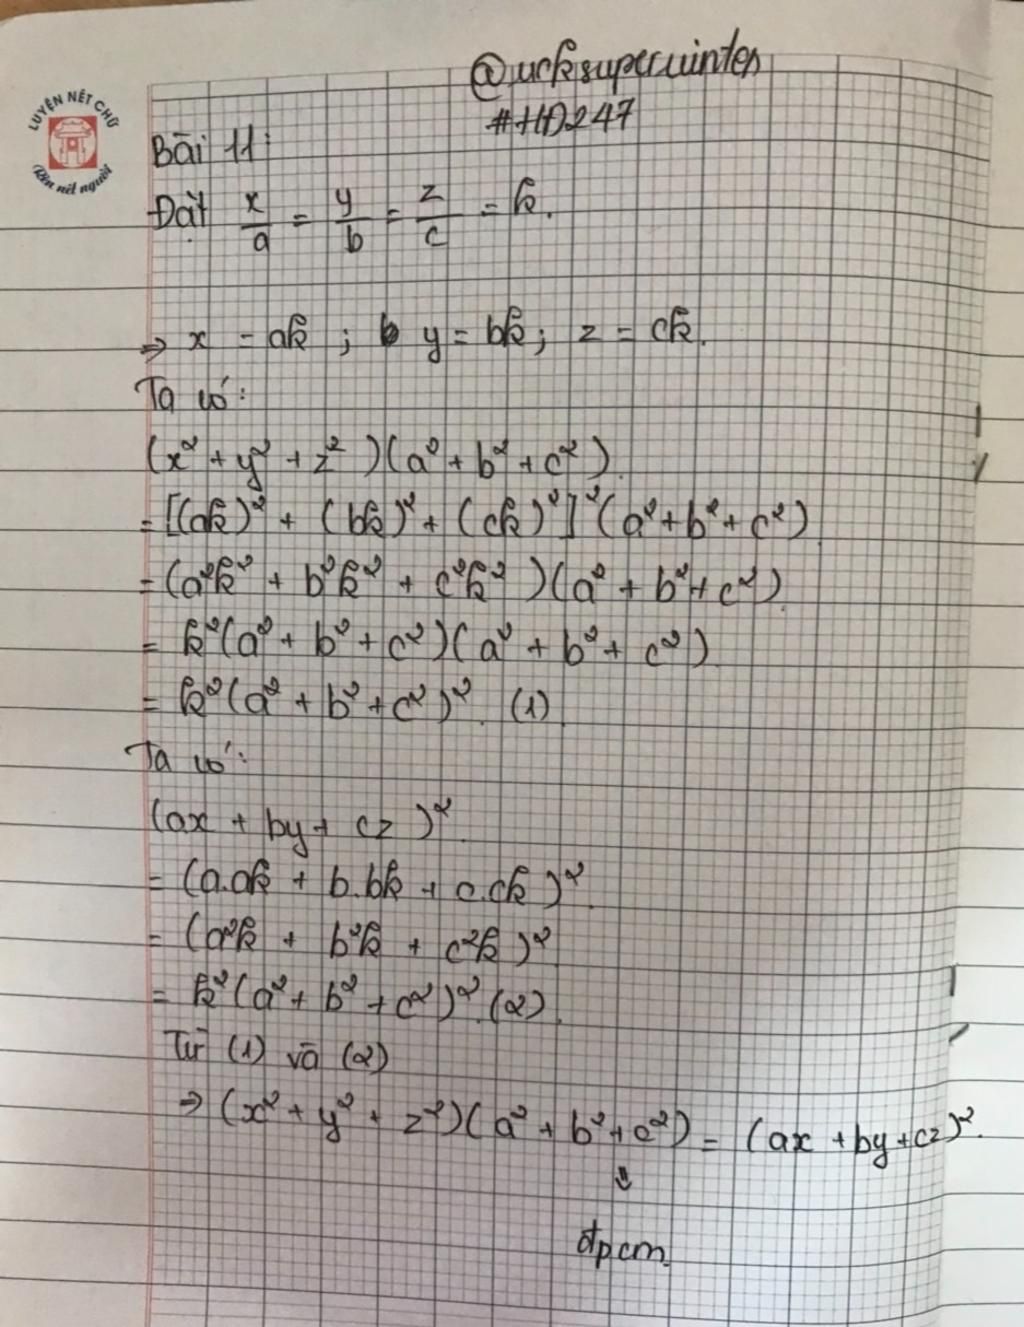 @ucksuperwinten
#HD247
LUYỆN NÉT CHỮ
Rèn nết người
Bài 11:
Đặt x/a = y/b = z/c = k.
⇒ x = ak ; b y = bk ; z = ck.
Ta có:
(x² + y² + z²)(a² + b² + c²)
= [(ak)² + (bk)² + (ck)²]²(a² + b² + c²)
= (a²k² + b²k² + c²k²)(a² + b² + c²)
= k²(a² + b² + c²)(a² + b² + c²)
= k²(a² + b² + c²)². (1)
Ta có:
(ax + by + cz)²
= (a.ak + b.bk + c.ck)²
= (a²k + b²k + c²k)²
= k²(a² + b² + c²)². (2)
Từ (1) và (2)
⇒ (x² + y² + z²)(a² + b² + c²) = (ax + by + cz)².
⇓
đpcm